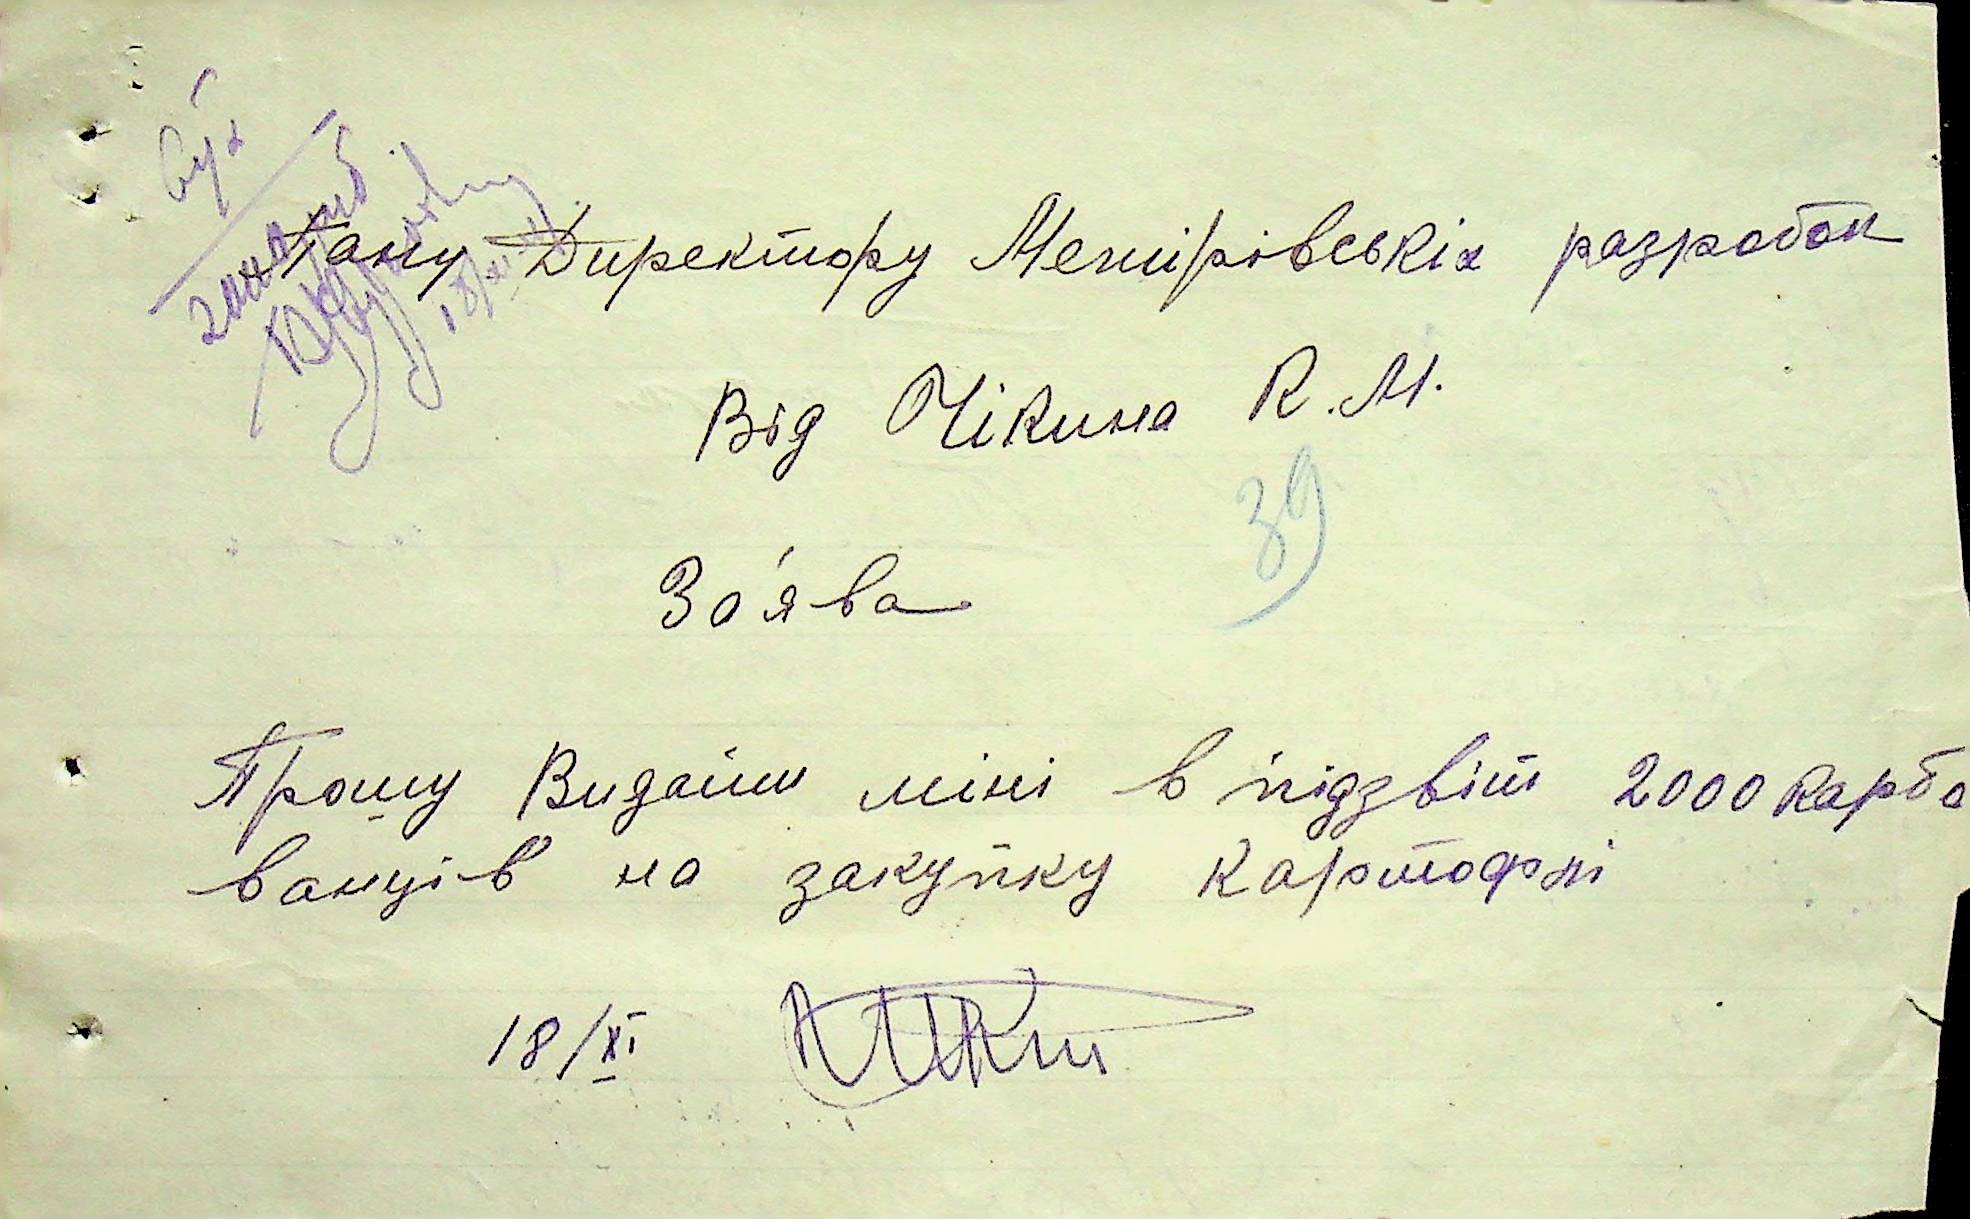 бух
Пану Директору Мепирівськіх разработок
Від Чікина К.М.
39
Зо'ява
Прошу Видати міні в підзвіт 2000 карбо
ванців на закупку картофлі
18/XI